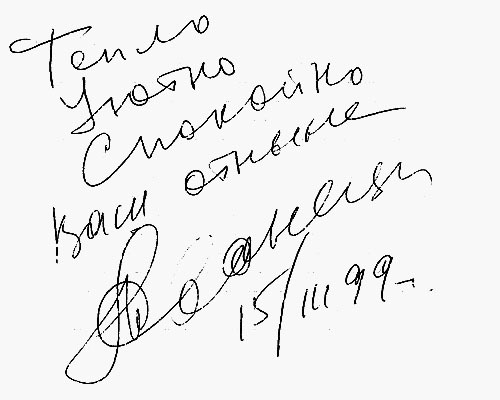 Тепло
Уютно
Спокойно
Ваш отныне
15/III 99 г.